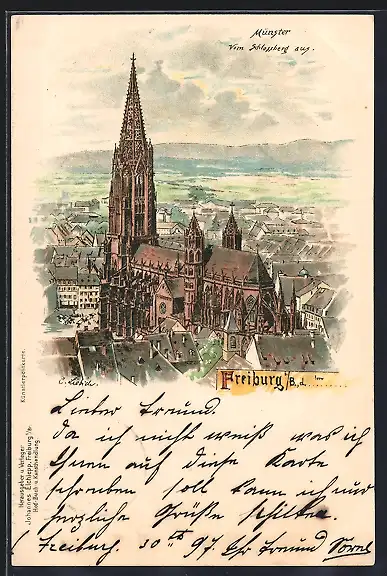 Münster
Vom Schlossberg aus.
Freiburg i/B., d.
Künstlerpostkarte.
Herausgeber u. Verleger
Johannes Elchlepp, Freiburg i/B.
Hof-Buch- u. Kunsthandlung.
Lieber Freund.
Da ich nicht weiß was ich
Ihnen auf diese Karte
schreiben soll kann ich nur
herzliche Grüße schicken.
Freiburg. 30 97. Ihr Freund